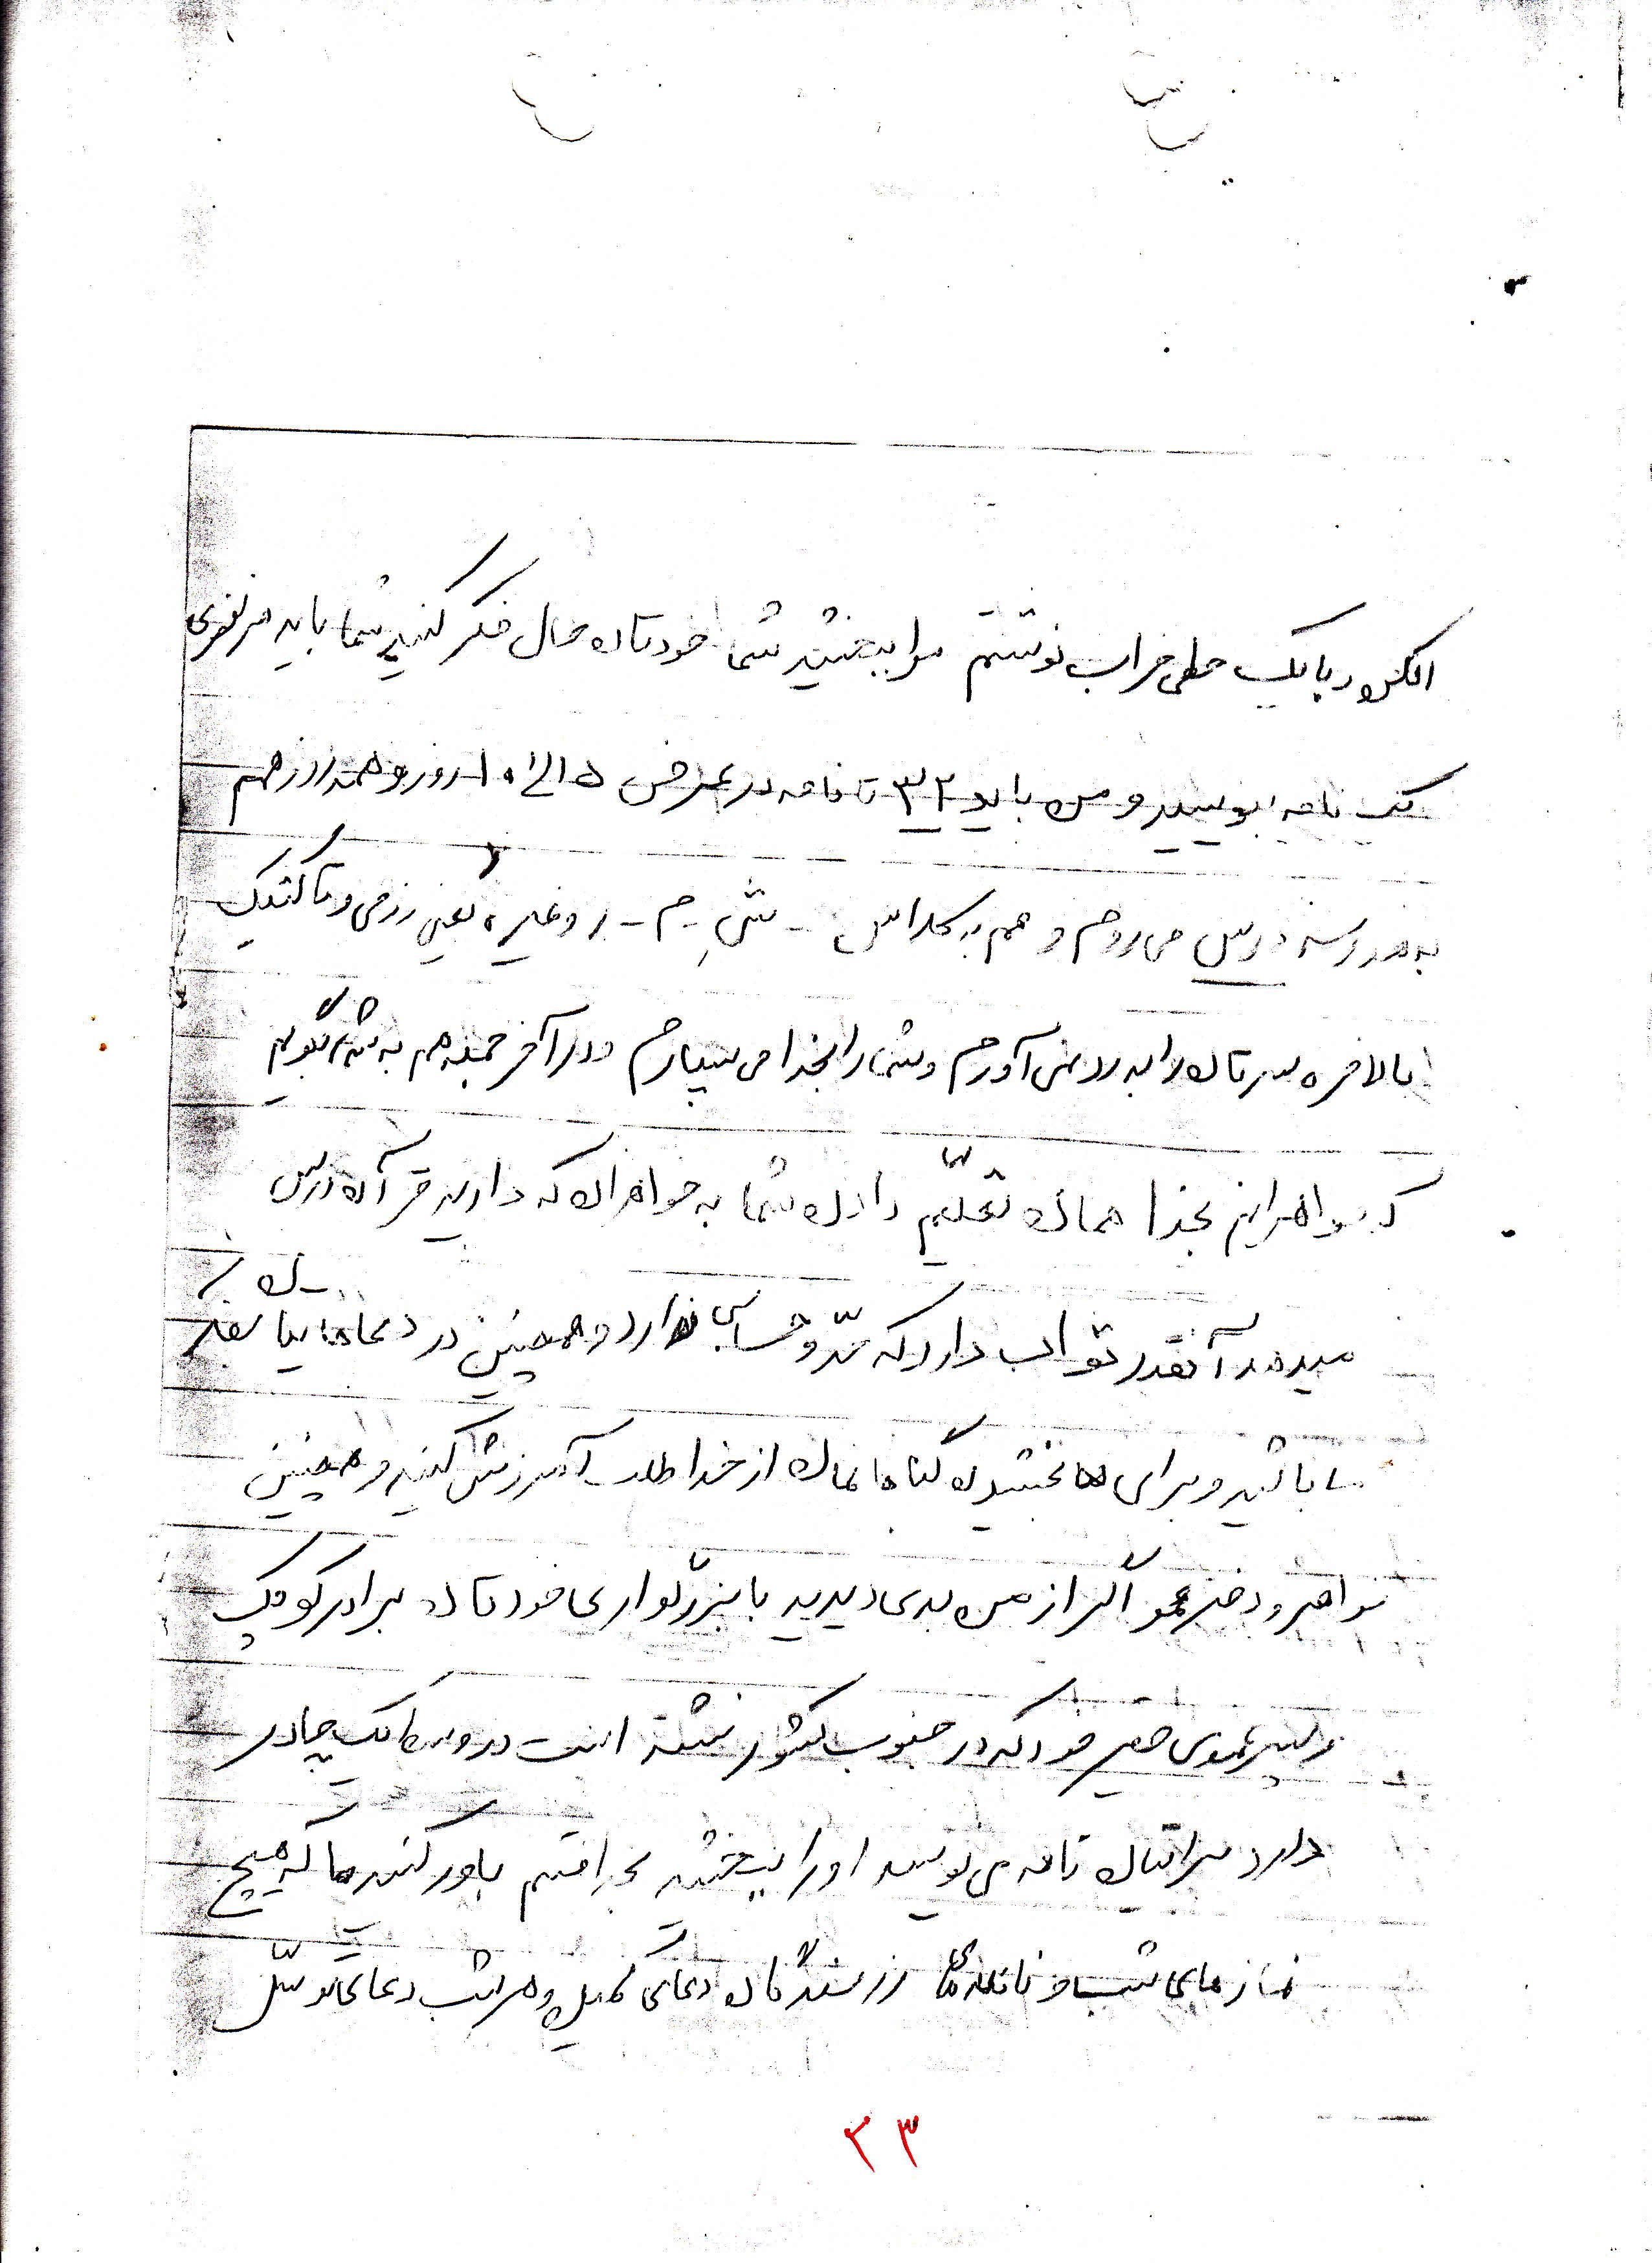 اگر با یک خطی خراب نوشتم مرا ببخشید شما خودتان حال فکر کنید شما باید هر نفری
یک نامه بنویسید و من باید ۳۲ تا نامه در عرض ۵ الی ۱۰ روز و همه روز هم
به مدرسه درس می روم و هم به کلاس ش - م - ر وغیره یعنی رزمی و تاکتیک
بالاخره سرتان را به درد نمی آورم و شما را بخدا می سپارم و در آخر جمله هم به شما بگویم
که خواهرانم بخدا همان تعلیم دادن شما به خواهران که دارید قرآن درس
میدهد آنقدر ثواب دارد که حدّ و حسابی ندارد و همچنین در دعاهایتان بفکر
ما باشید و برای ما بخشیدن گناهانمان از خدا طلب آمرزش کنید و همچنین
خواهر و دخترعمو اگر از من بدی دیدید با بزرگواری خودتان برادر کوچک
و پسرعموی حقیر خود که در جنوب کشور نشسته است در وسط یک چادر
دارد برایتان نامه می نویسد او را ببخشید بخدا قسم باور کنید ما که هیچ
نماز های شب و نافله های رزمندگان دعای کمیل و هر شب دعای توسّل
۳۳